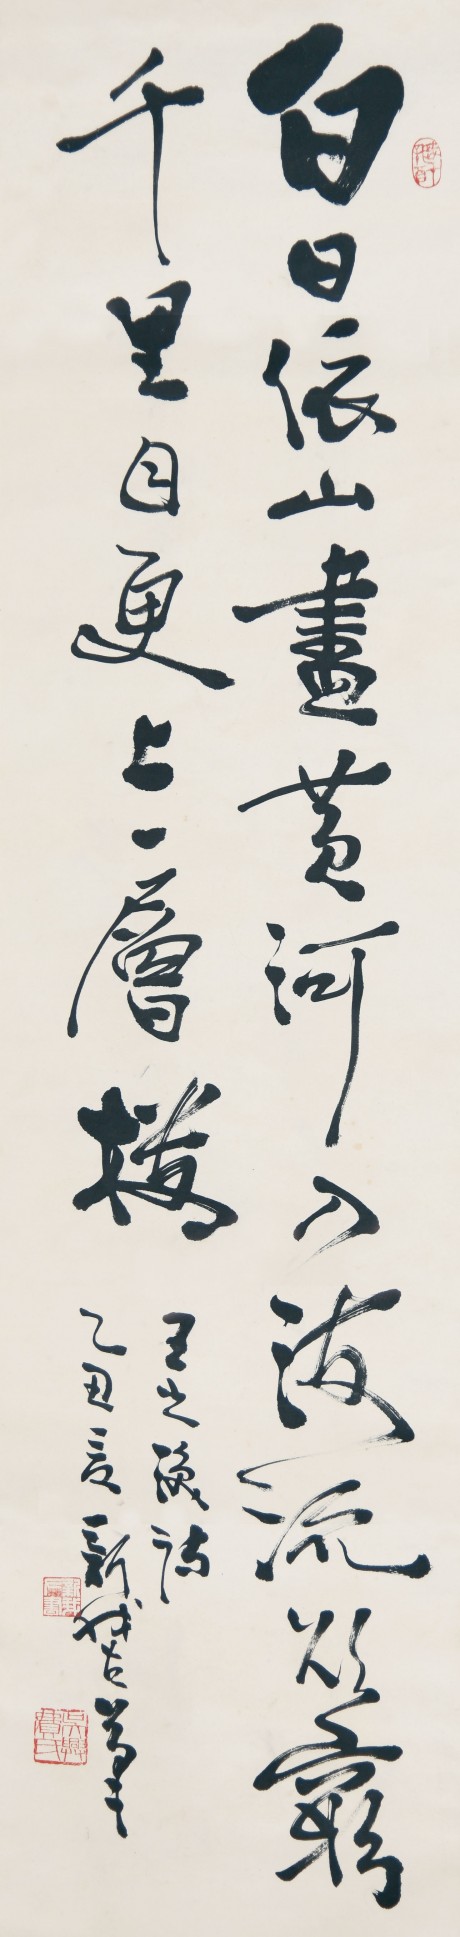 白日依山盡黄河入海流欲窮
千里目更上一層樓
王之渙詩
乙丑夏新我左筆
吳興費氏